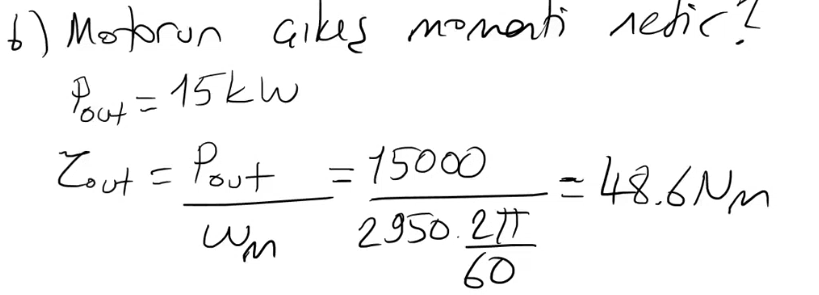 b) Motorun çıkış momenti nedir?
Pout = 15kW
τout = Pout / ωm = 15000 / (2950 · 2π/60) = 48.6Nm